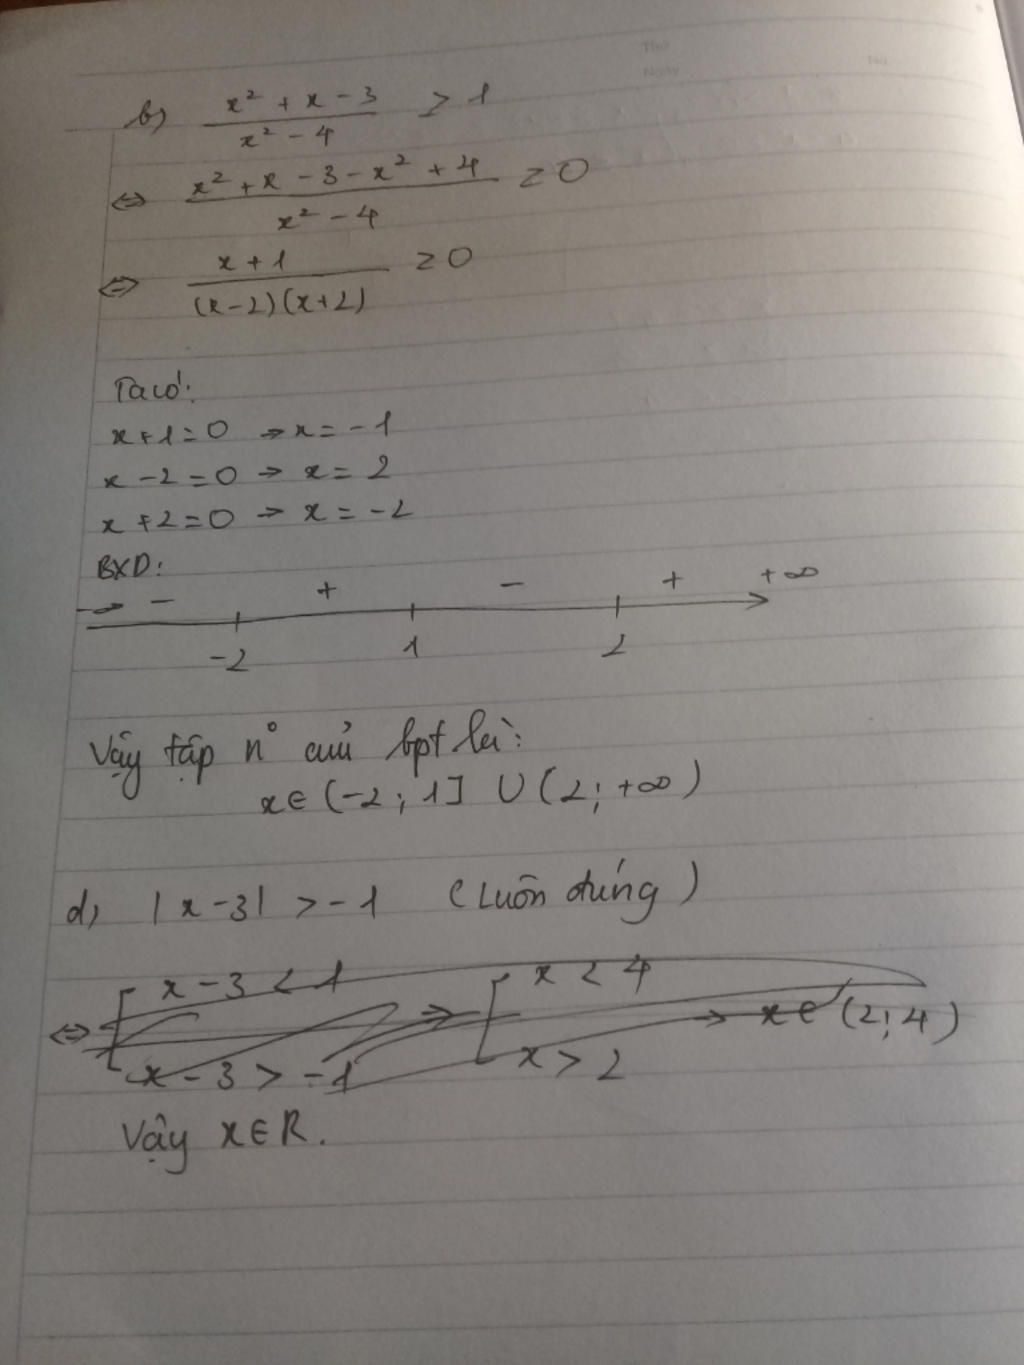 Thứ
Ngày
No.
b) (x² + x - 3)/(x² - 4) ≥ 1
⇔ (x² + x - 3 - x² + 4)/(x² - 4) ≥ 0
⇔ (x + 1)/((x-2)(x+2)) ≥ 0
Ta có:
x + 1 = 0 → x = -1
x - 2 = 0 → x = 2
x + 2 = 0 → x = -2
BXD:
-∞ - + - + +∞
-2 1 2
Vậy tập n° của bpt là:
x ∈ (-2 ; 1] ∪ (2 ; +∞)
d) |x - 3| > -1 (Luôn đúng)
⇔ [ x - 3 < 1 → [ x < 4
→ x ∈ (2 ; 4)
x - 3 > -1 x > 2
Vậy x ∈ R.